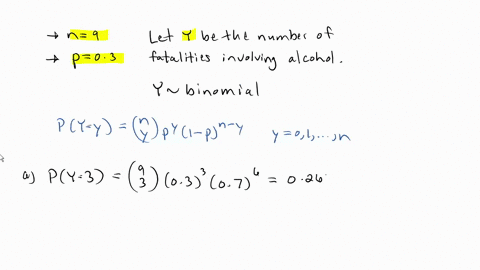 → n=9 Let Y be the number of
→ p=0.3 fatalities involving alcohol.
Y~ binomial
P(Y=y) = (n y) p^y (1-p)^{n-y} y=0,1,...,n
a) P(Y=3) = (9 3) (0.3)^3 (0.7)^6 = 0.26